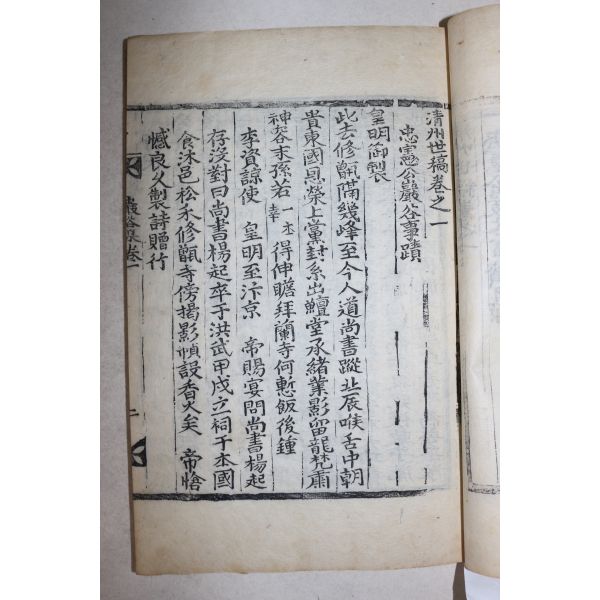 清州世稿卷之一
忠憲公巖谷事蹟
皇明御製
此去修甑隔幾峰至今人道尚書蹤北辰喉舌中朝
貴東國恩榮上黨封系出鱣堂承緒業影留龍梵肅
神容末孫若一本幸得伸瞻拜蘭寺何慙飯後鍾
李資諒使 皇明至汴京 帝賜宴問尚書楊起
存沒對曰尚書楊起卒于洪武甲戌立祠于本國
食沐邑松禾修甑寺傍揭影幀設香火矣 帝愴
憾良久製詩贈行
巖谷集卷一